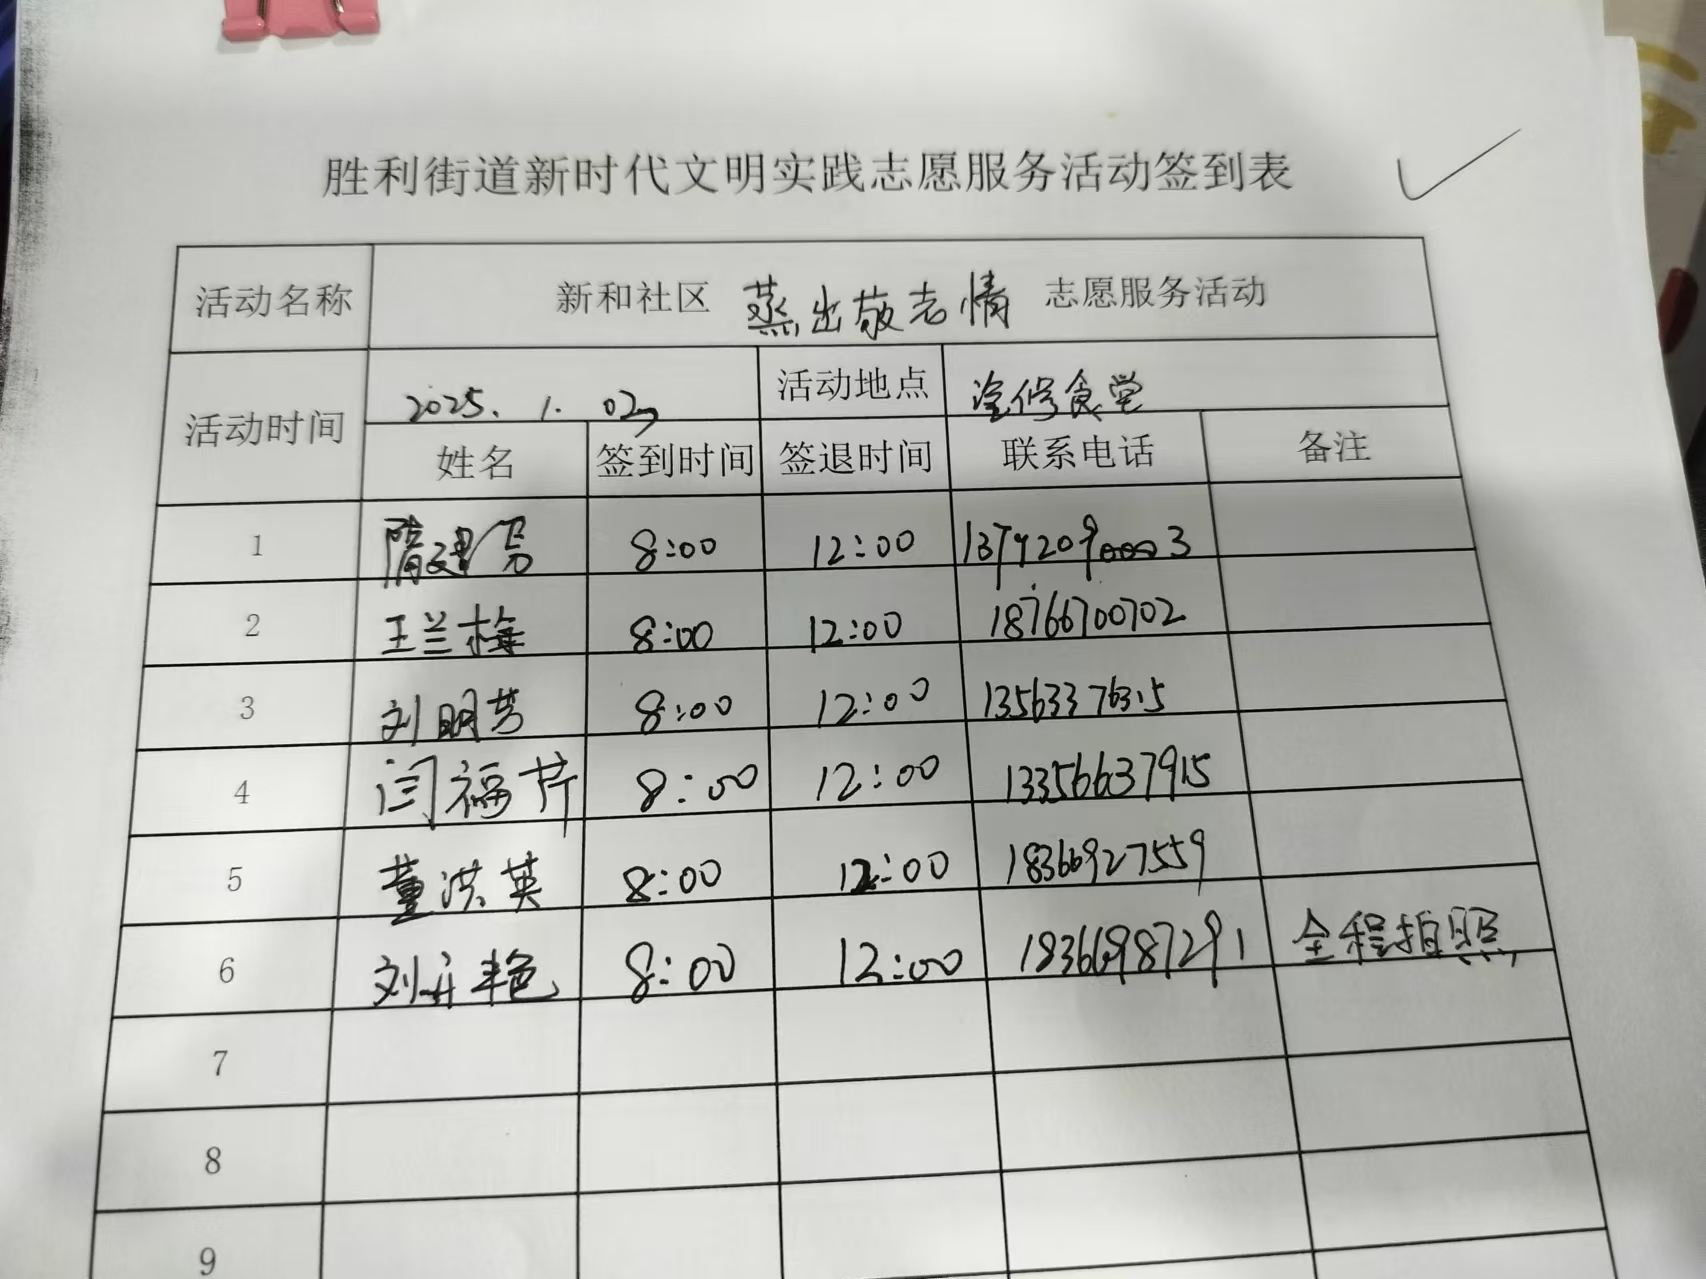 胜利街道新时代文明实践志愿服务活动签到表
活动名称 新和社区 蒸出敬老情 志愿服务活动
活动时间 2025.1.02 活动地点 食堂
姓名 签到时间 签退时间 联系电话 备注
1 隋建 8:00 12:00
2 王兰梅 8:00 12:00 18766700702
3 刘明芳 8:00 12:00 13563376315
4 闫福芹 8:00 12:00 13356637915
5 董洪英 8:00 12:00 18366927559
6 刘 艳 8:00 12:00 18366987291 全程拍照
7
8
9